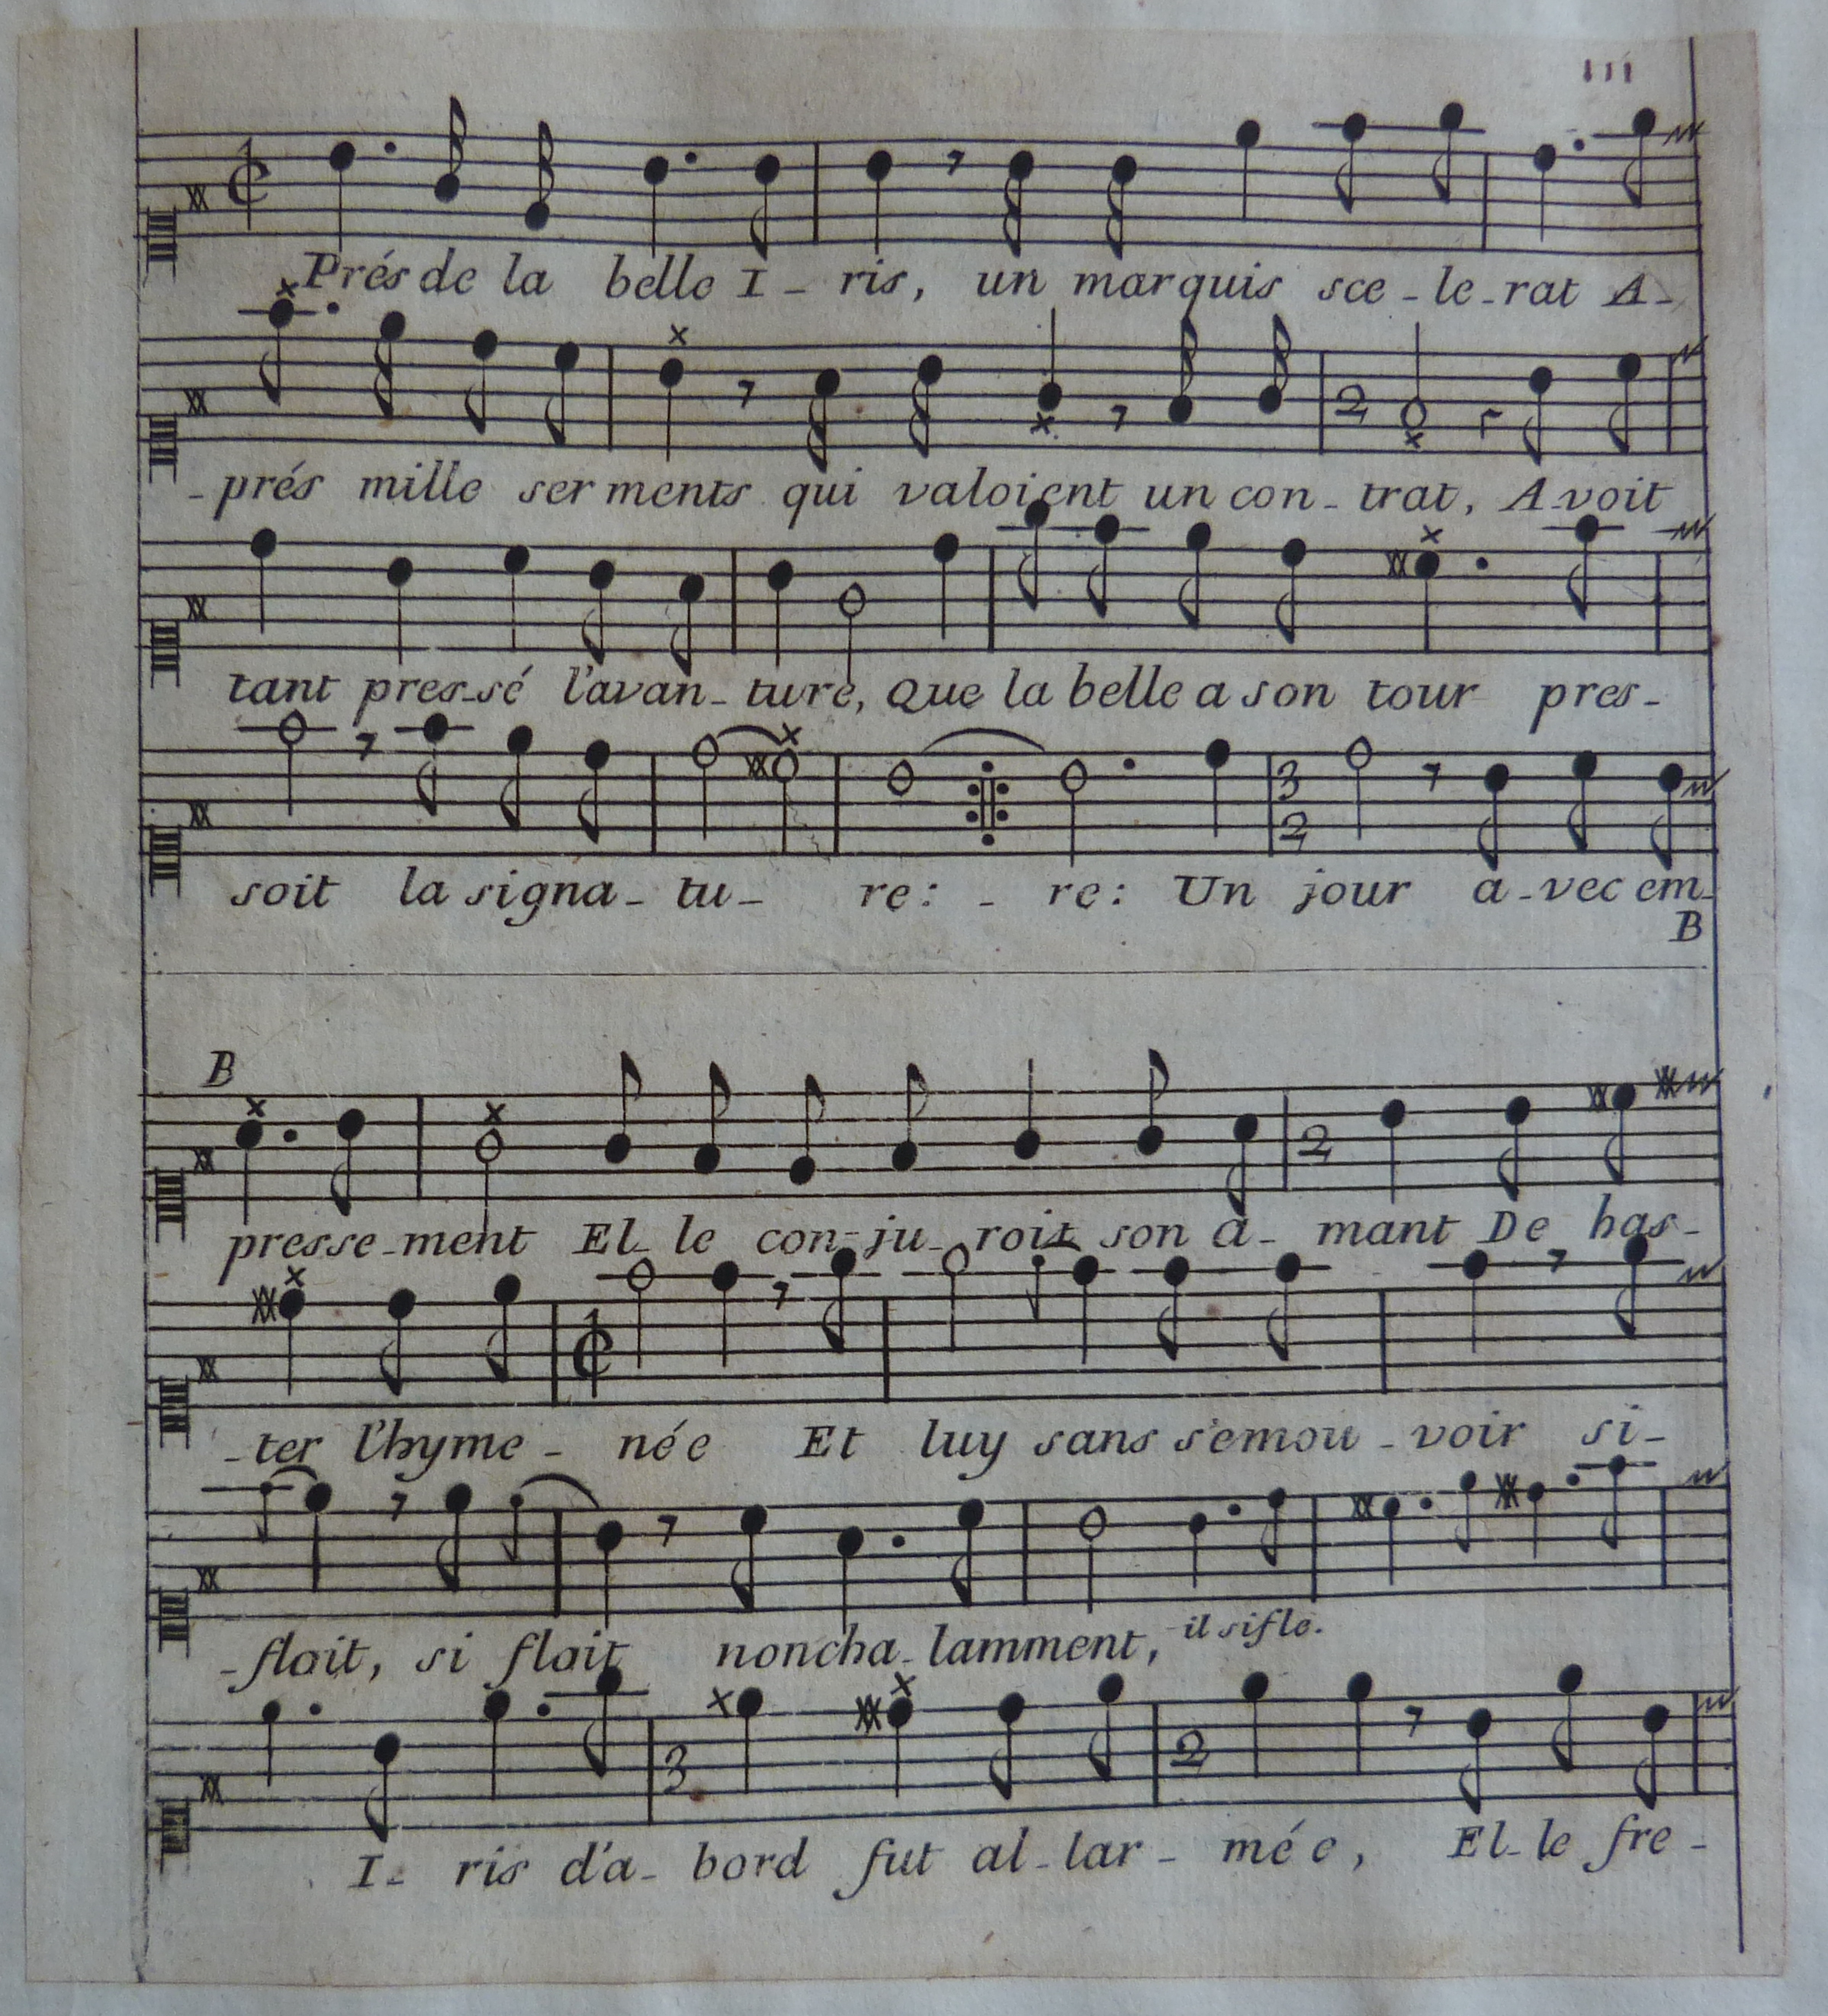 111
Prés de la belle I - ris, un marquis sce - le - rat A -
- prés mille ser ments qui valoient un con - trat, A - voit
tant pres - sé l'avan - ture, que la belle a son tour pres -
soit la signa - tu - re : - re : Un jour a - vec em -
B
B
presse - ment El - le con - ju - roit son a - mant De has -
- ter l'hyme - née Et luy sans s'emou - voir si -
- floit, si floit noncha - lamment, il sifle.
I - ris d'a - bord fut al - lar - mée, El - le fre -